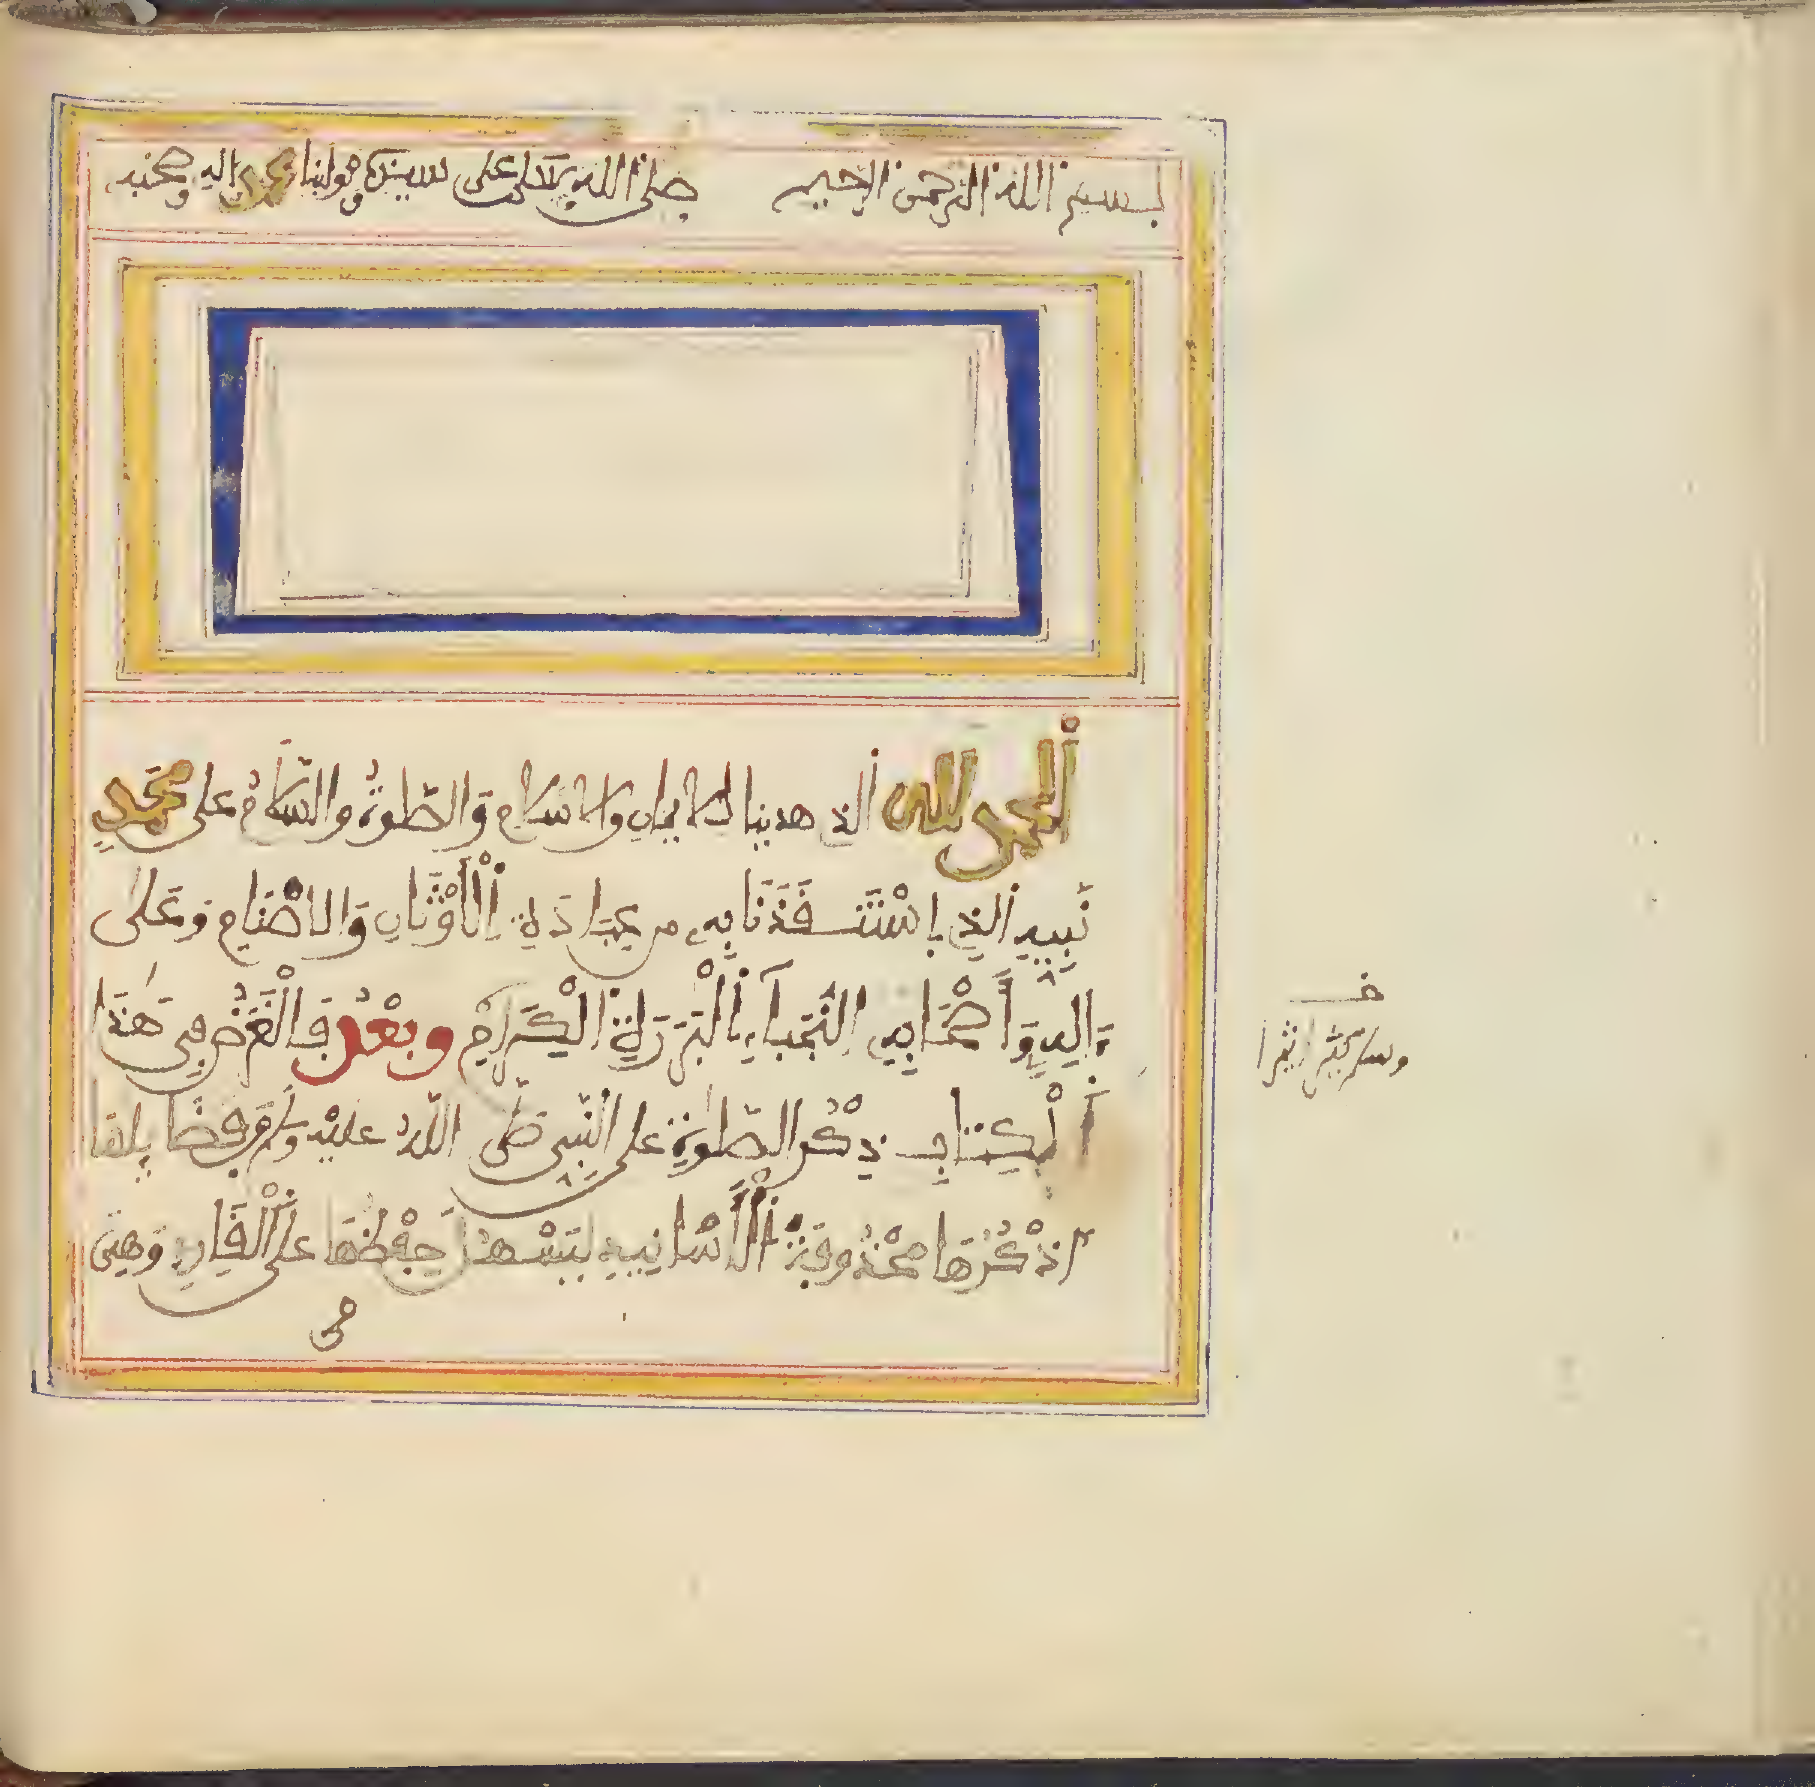 بسم الله الرحمن الرحيم صلى الله على سيدنا ومولانا محمد واله وصحبه
ألحمد لله ألذي هدينا للايمان والاسلام وَالصّلوةُ والسّلامُ على مُحَمّدٍ
نَبِيِهِ ألذِي اِسْتَنفَذَنَا بِهِ مِن عِبَادَةِ اِلْأَوْثَانِ وَالاصْنَامِ وَعَلى
ءَالِهِ وَأَصْحَابِهِ اِلنُّجَبَآءِ اِلْبَرَرَةِ اِلْكِرَامِ وبعْدُ فَالْغَرَضُ فِي هَذَا
أَلْكِتَابِ ذِكْرُ الصّلوةِ على النّبِي صَلّى اللهُ عليْهِ وسلّم وفضا يلها
نذْكُرُهَا محْذُوفَةَ اَلْأَسَانِيدِ لِيَسْهُلَ حِفْظُهَا على اَلْقَارِئِ وَهِيَ
من
وسلم كثيرا اثيرا